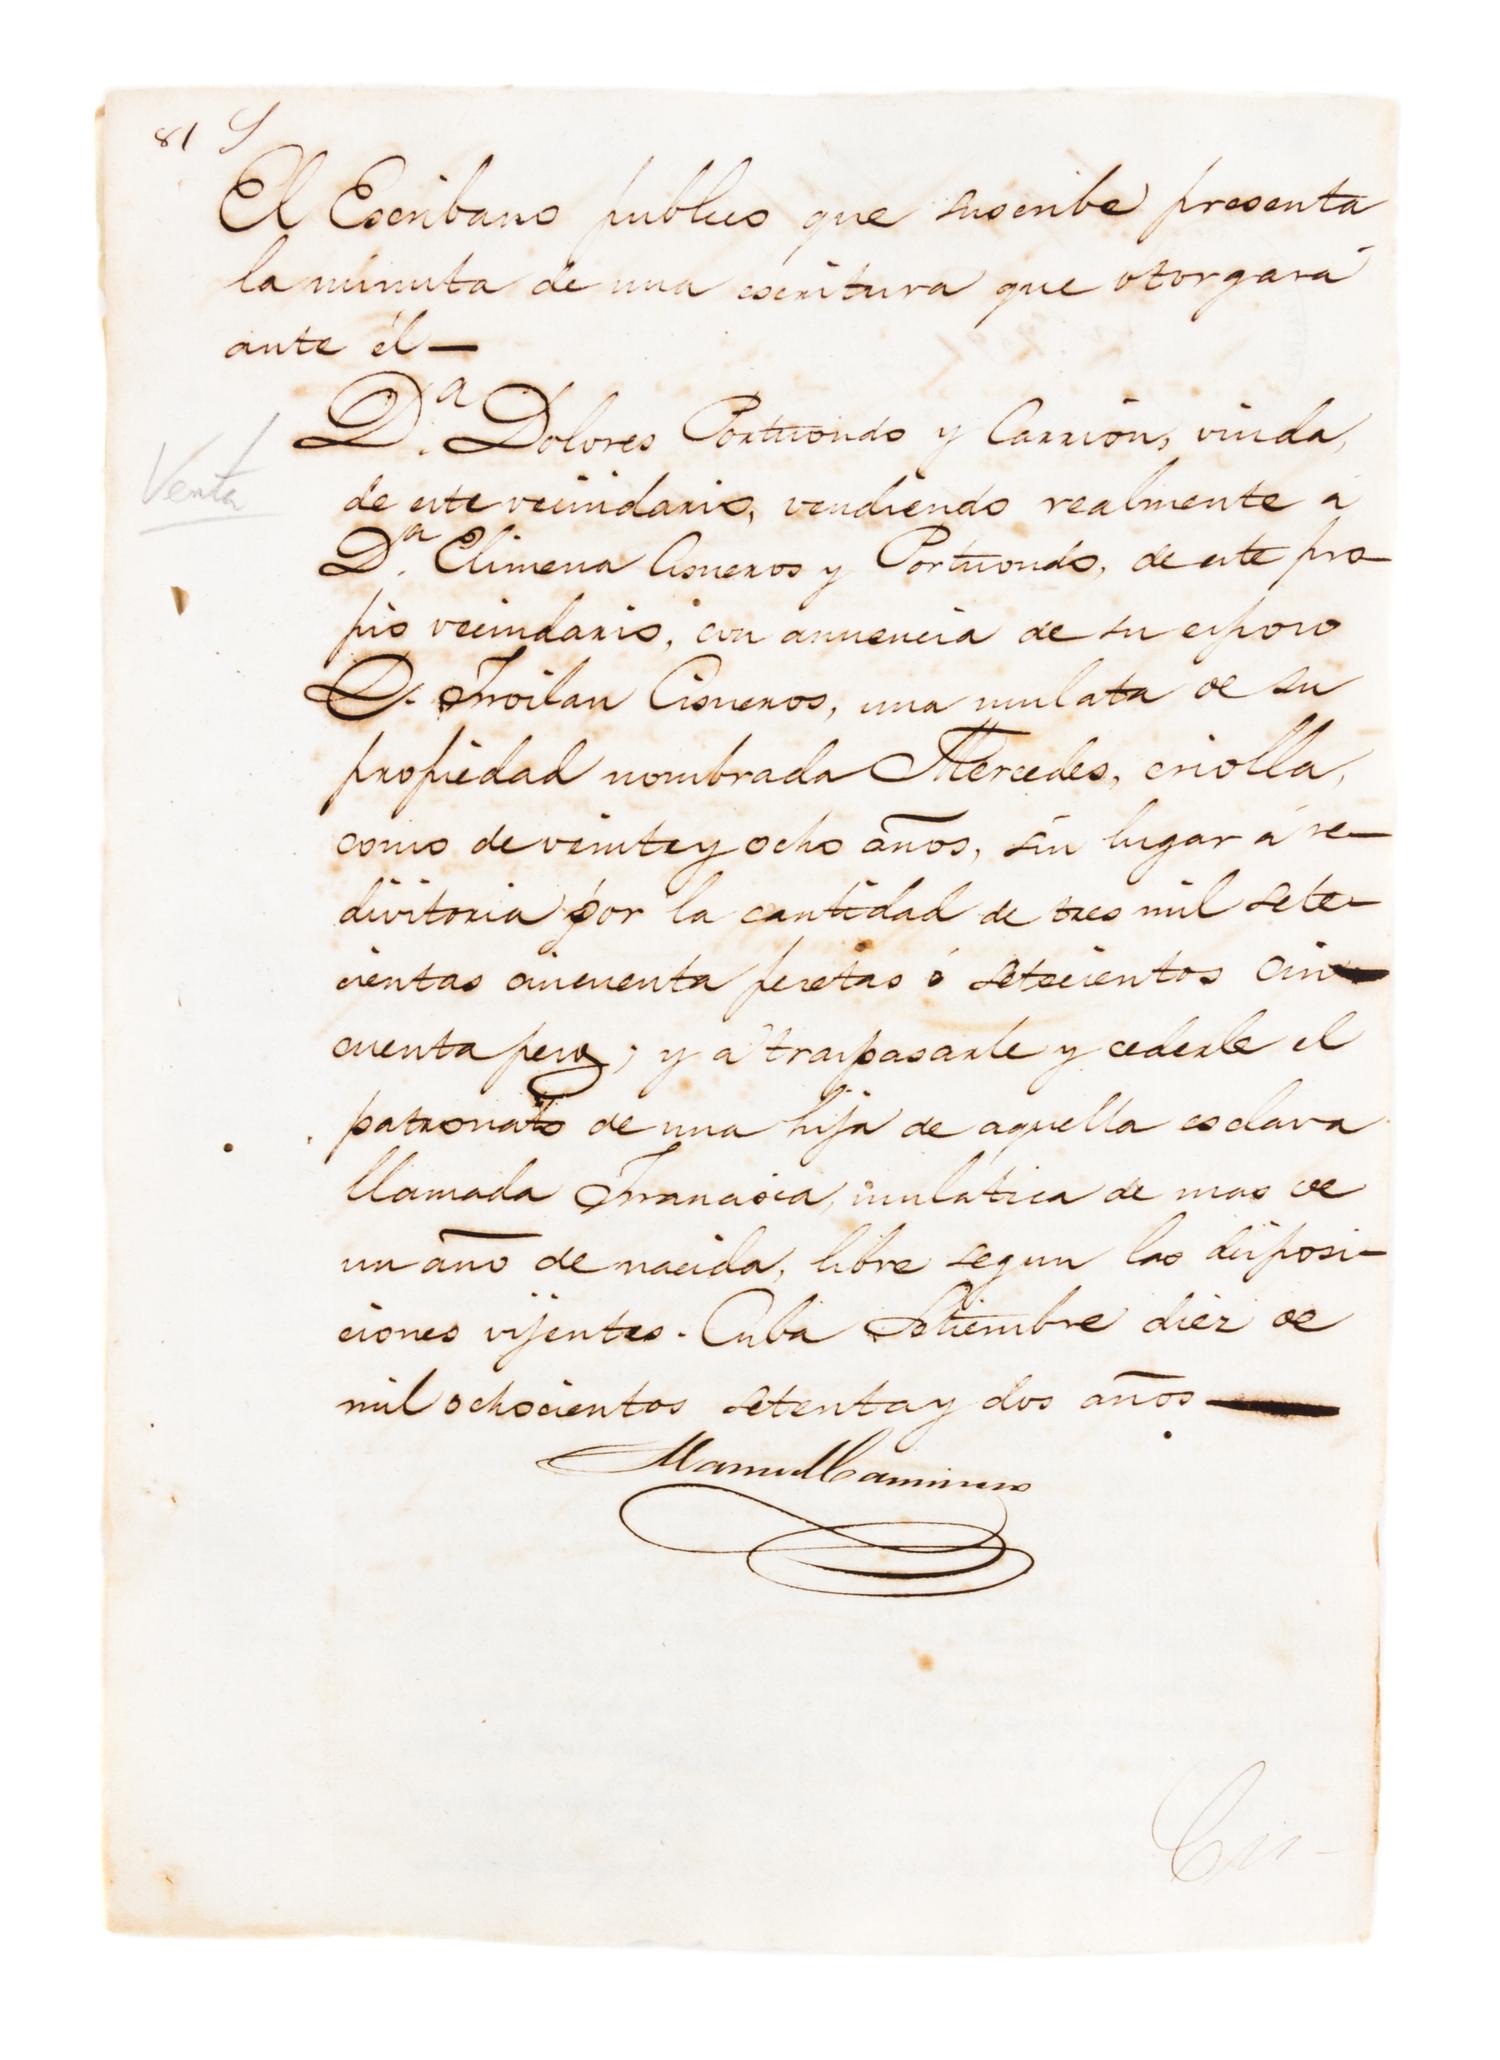 81 S
El Escribano publico que suscribe presenta
la minuta de una escritura que otorgará
ante él—
Dª. Dolores Portuondo y Carrion, viuda,
Venta
de este vecindario, vendiendo realmente á
Dª. Climena Cisneros y Portuondo, de este pro-
pio vecindario, con anuencia de su esposo
D. Froilan Cisneros, una mulata de su
propiedad nombrada Mercedes, criolla,
como de veinte y ocho años, sin lugar á re-
divitoria por la cantidad de tres mil sete-
cientas cincuenta pesetas ó setecientos cin-
cuenta pesos; y á traspasarle y cederle el
patronato de una hija de aquella esclava
llamada Francisca, mulatica de mas de
un año de nacida, libre segun las disposi-
ciones vijentes. Cuba Setiembre diez de
mil ochocientos setenta y dos años—
Manuel Caminero